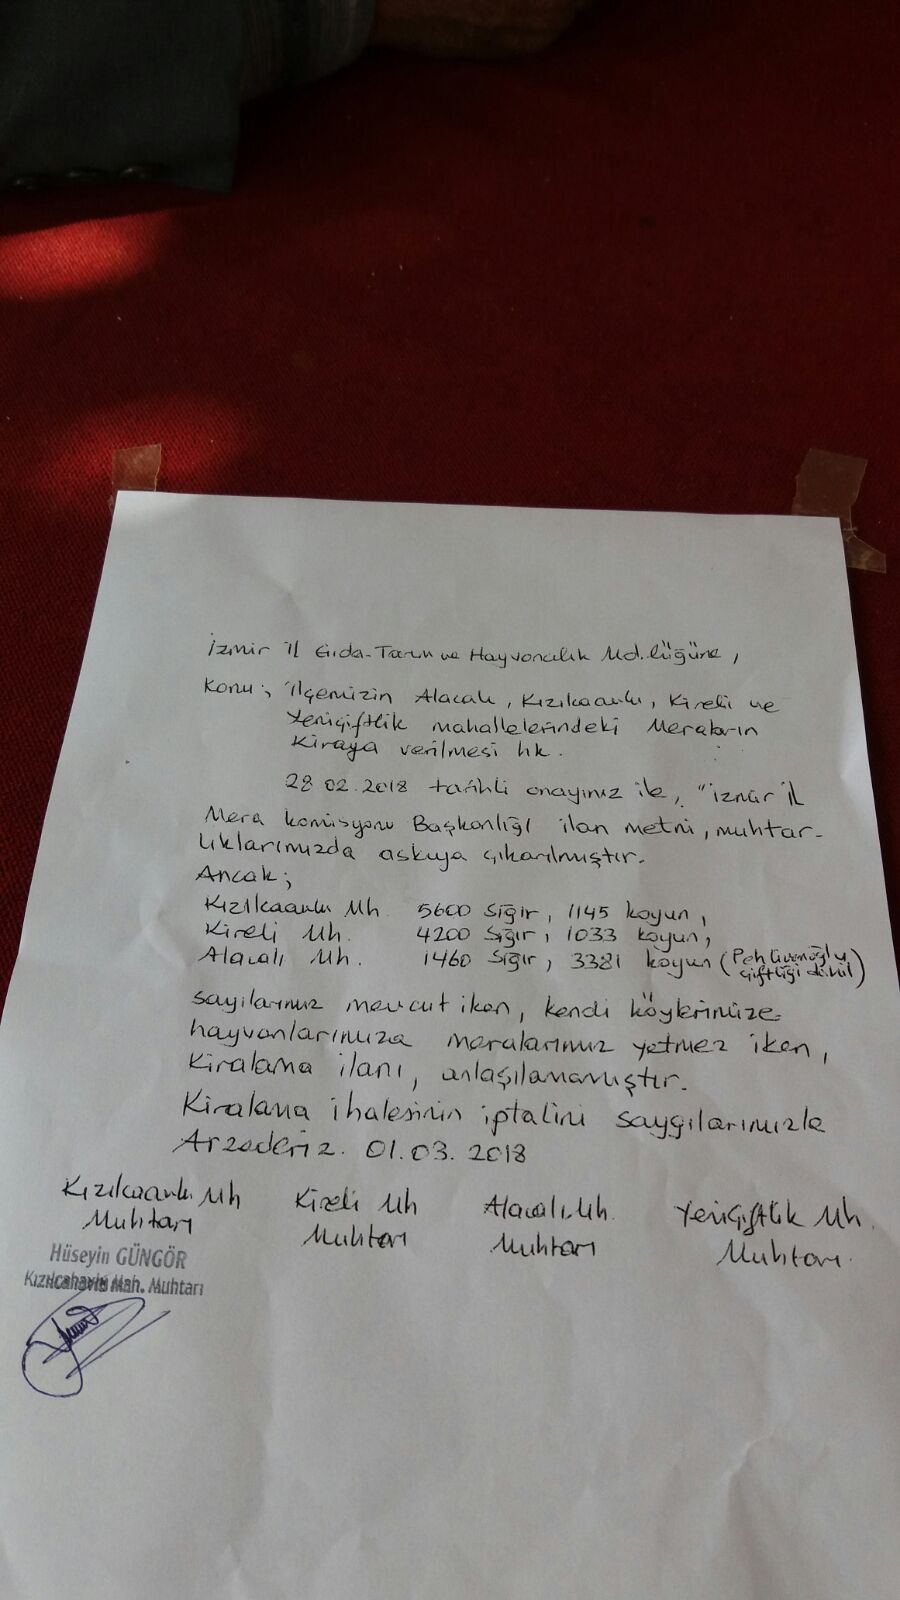 İzmir İl Gıda-Tarım ve Hayvancılık Md.lüğüne,
Konu; İlçemizin Alacalı, Kızılcaavlu, Kireli ve
Yeniçiftlik mahallelerindeki Meraların
Kiraya verilmesi hk.
28.02.2018 tarihli onayınız ile, "İzmir İl
Mera Komisyonu Başkanlığı ilan metni, muhtar-
lıklarımızda askıya çıkarılmıştır.
Ancak;
Kızılcaavlu Mh. 5600 Sığır, 1145 koyun,
Kireli Mh. 4200 Sığır, 1033 koyun,
Alacalı Mh. 1460 Sığır, 3381 koyun (Pehlivanoğlu
çiftliği dahil)
sayılarımız mevcut iken, kendi köylerimize
hayvanlarımıza meralarımız yetmez iken,
Kiralama ilanı, anlaşılamamıştır.
Kiralama ihalesinin iptalini saygılarımızla
Arzederiz. 01.03.2018
Kızılcaavlu Mh Kireli Mh Alacalı Mh. Yeniçiftlik Mh.
Muhtarı Muhtarı Muhtarı Muhtarı.
Hüseyin GÜNGÖR
Mah. Muhtarı